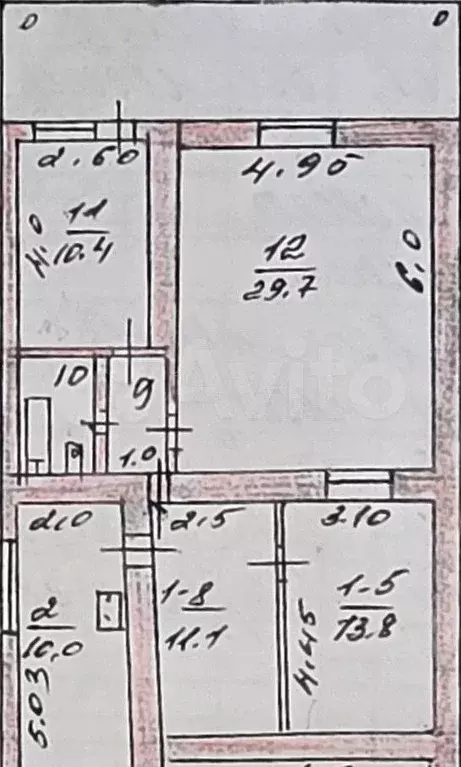 0 0
2.60
4.95
11
10.4
4.0
12
29.7
6.0
10
9
1.0
Avito
2,0
2.5
3.10
2
10,0
5.03
1-8
11.1
1-5
13.8
4.45